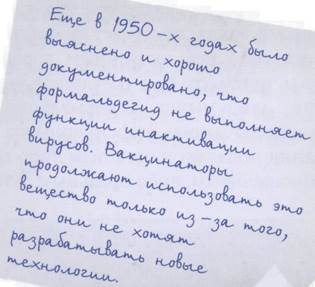 Еще в 1950-х годах было
выяснено и хорошо
документировано, что
формальдегид не выполняет
функции инактивации
вирусов. Вакцинаторы
продолжают использовать это
вещество только из-за того,
что они не хотят
разрабатывать новые
технологии.